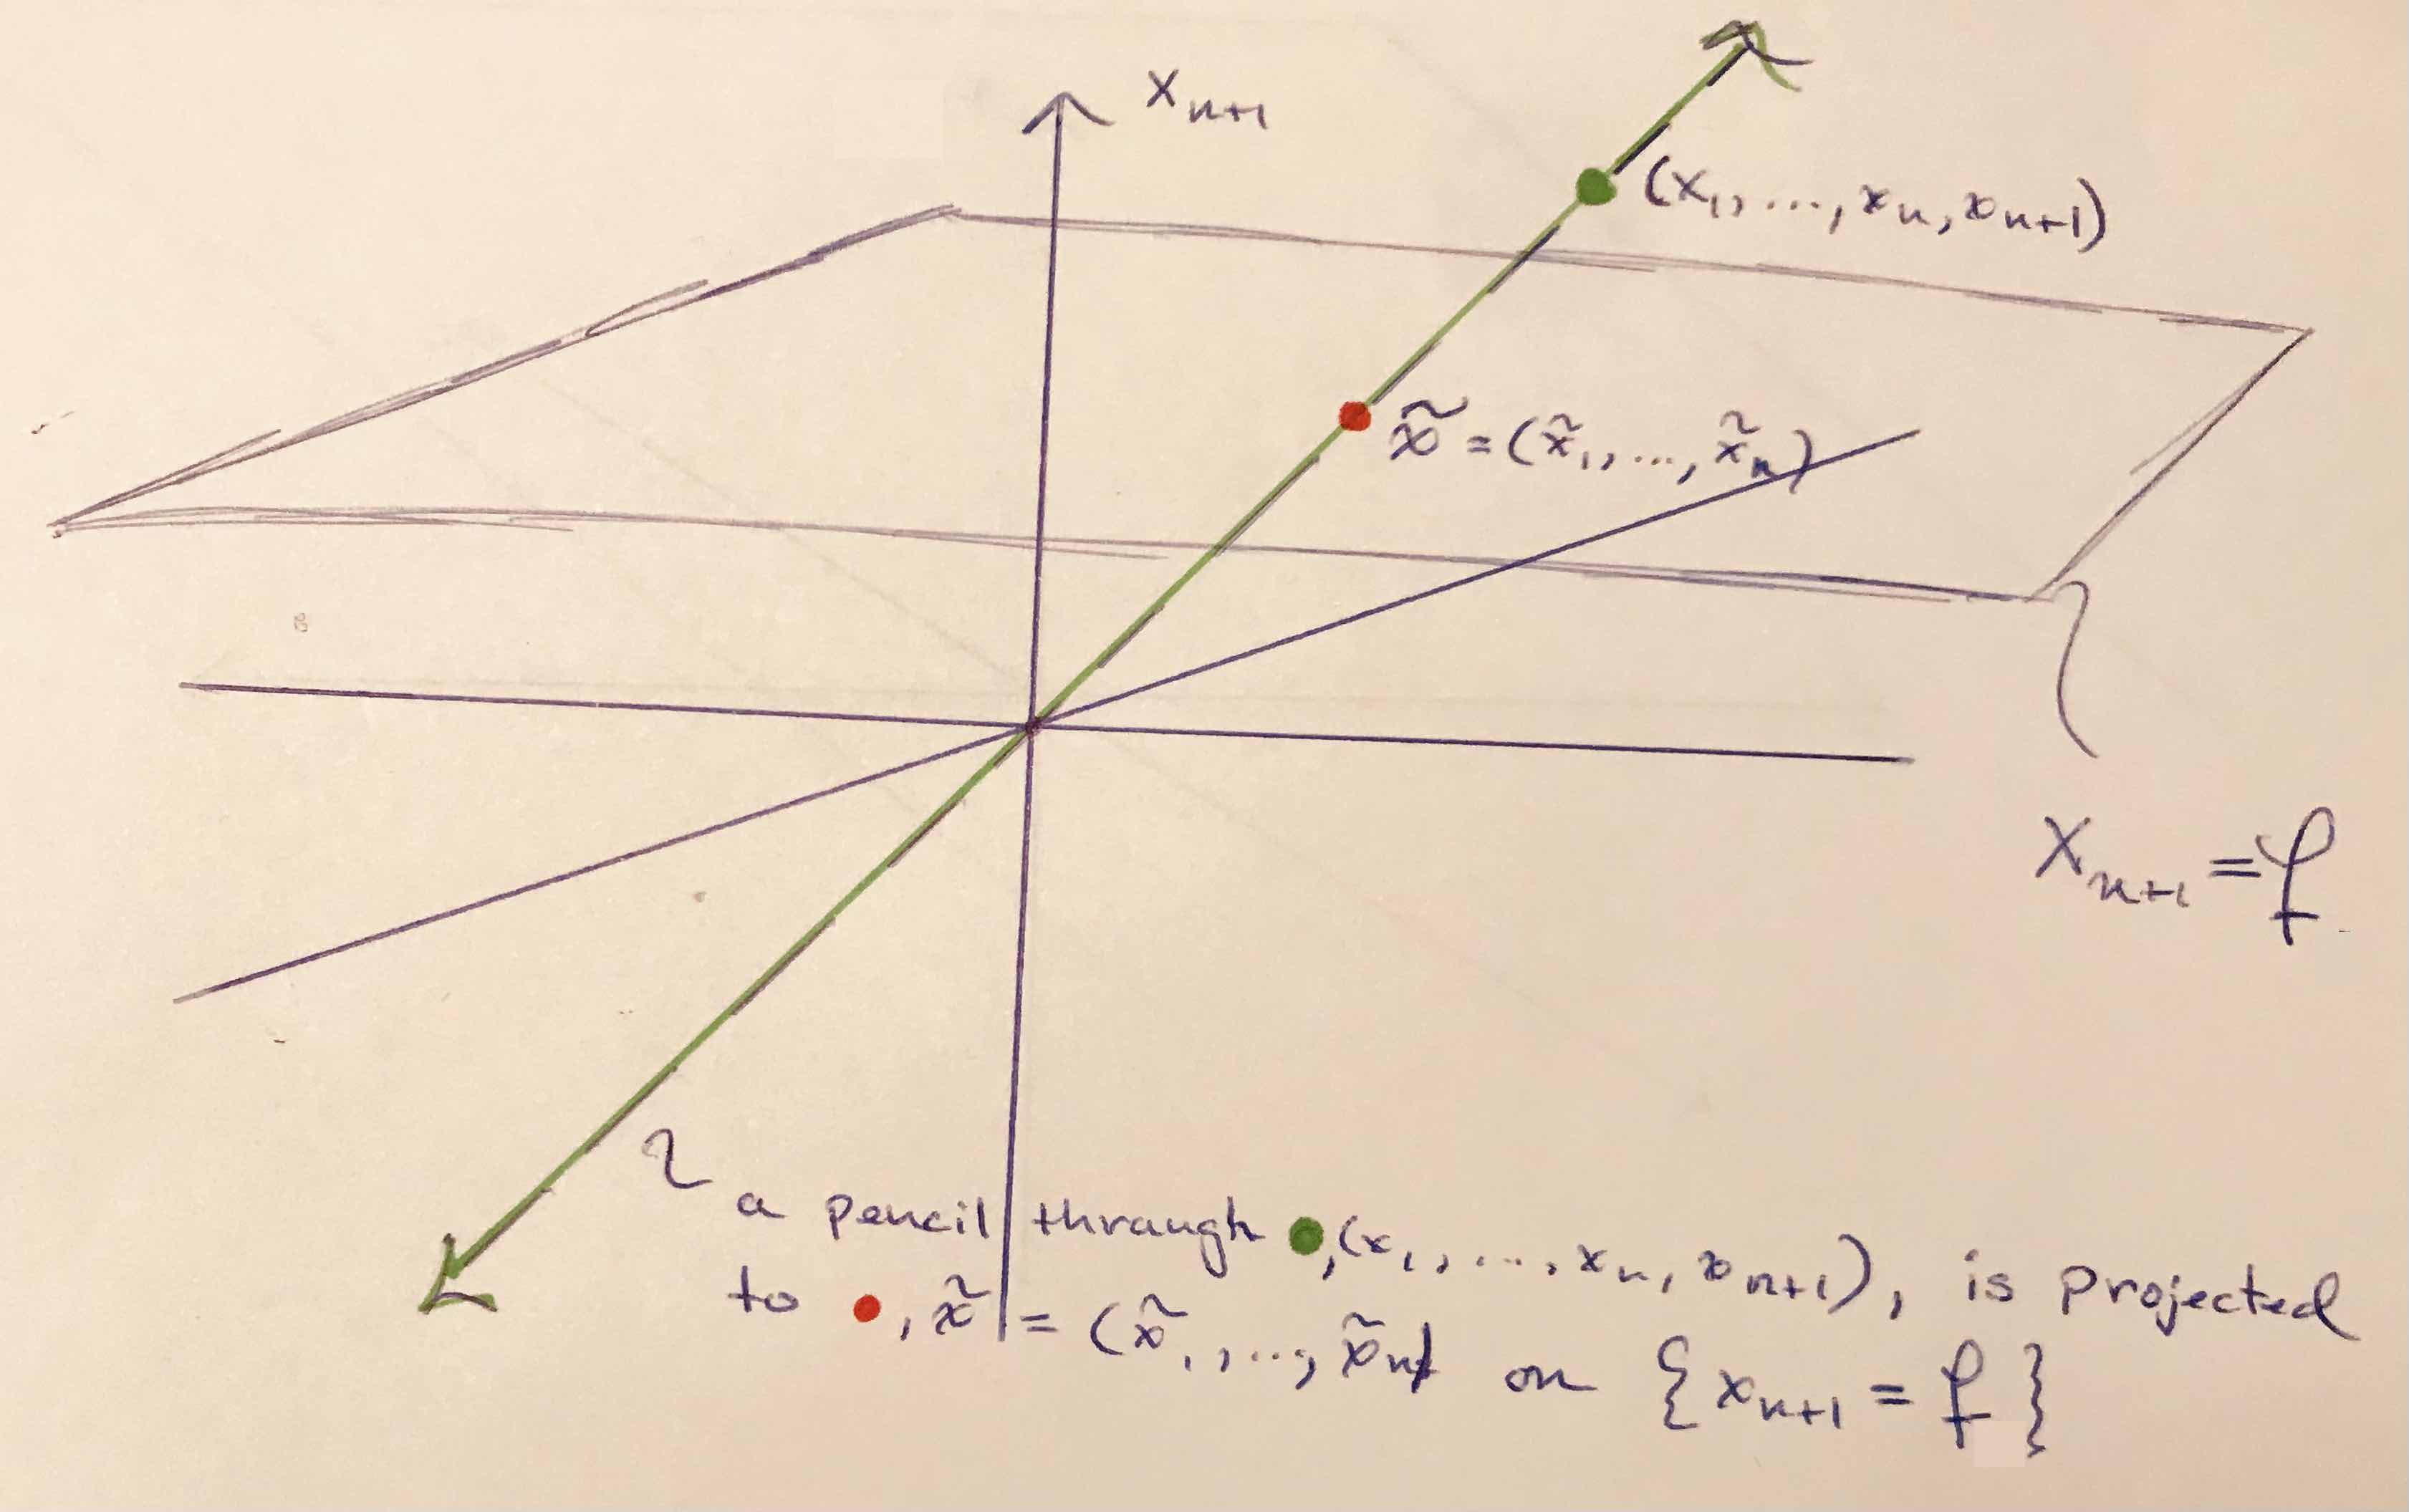 x_{n+1}
(x_1, ..., x_n, x_{n+1})
x̃ = (x̃_1, ..., x̃_n)
x_{n+1} = f
a pencil through ●, (x_1, ..., x_n, x_{n+1}), is projected
to ●, x̃ = (x̃_1, ..., x̃_n) on {x_{n+1} = f}